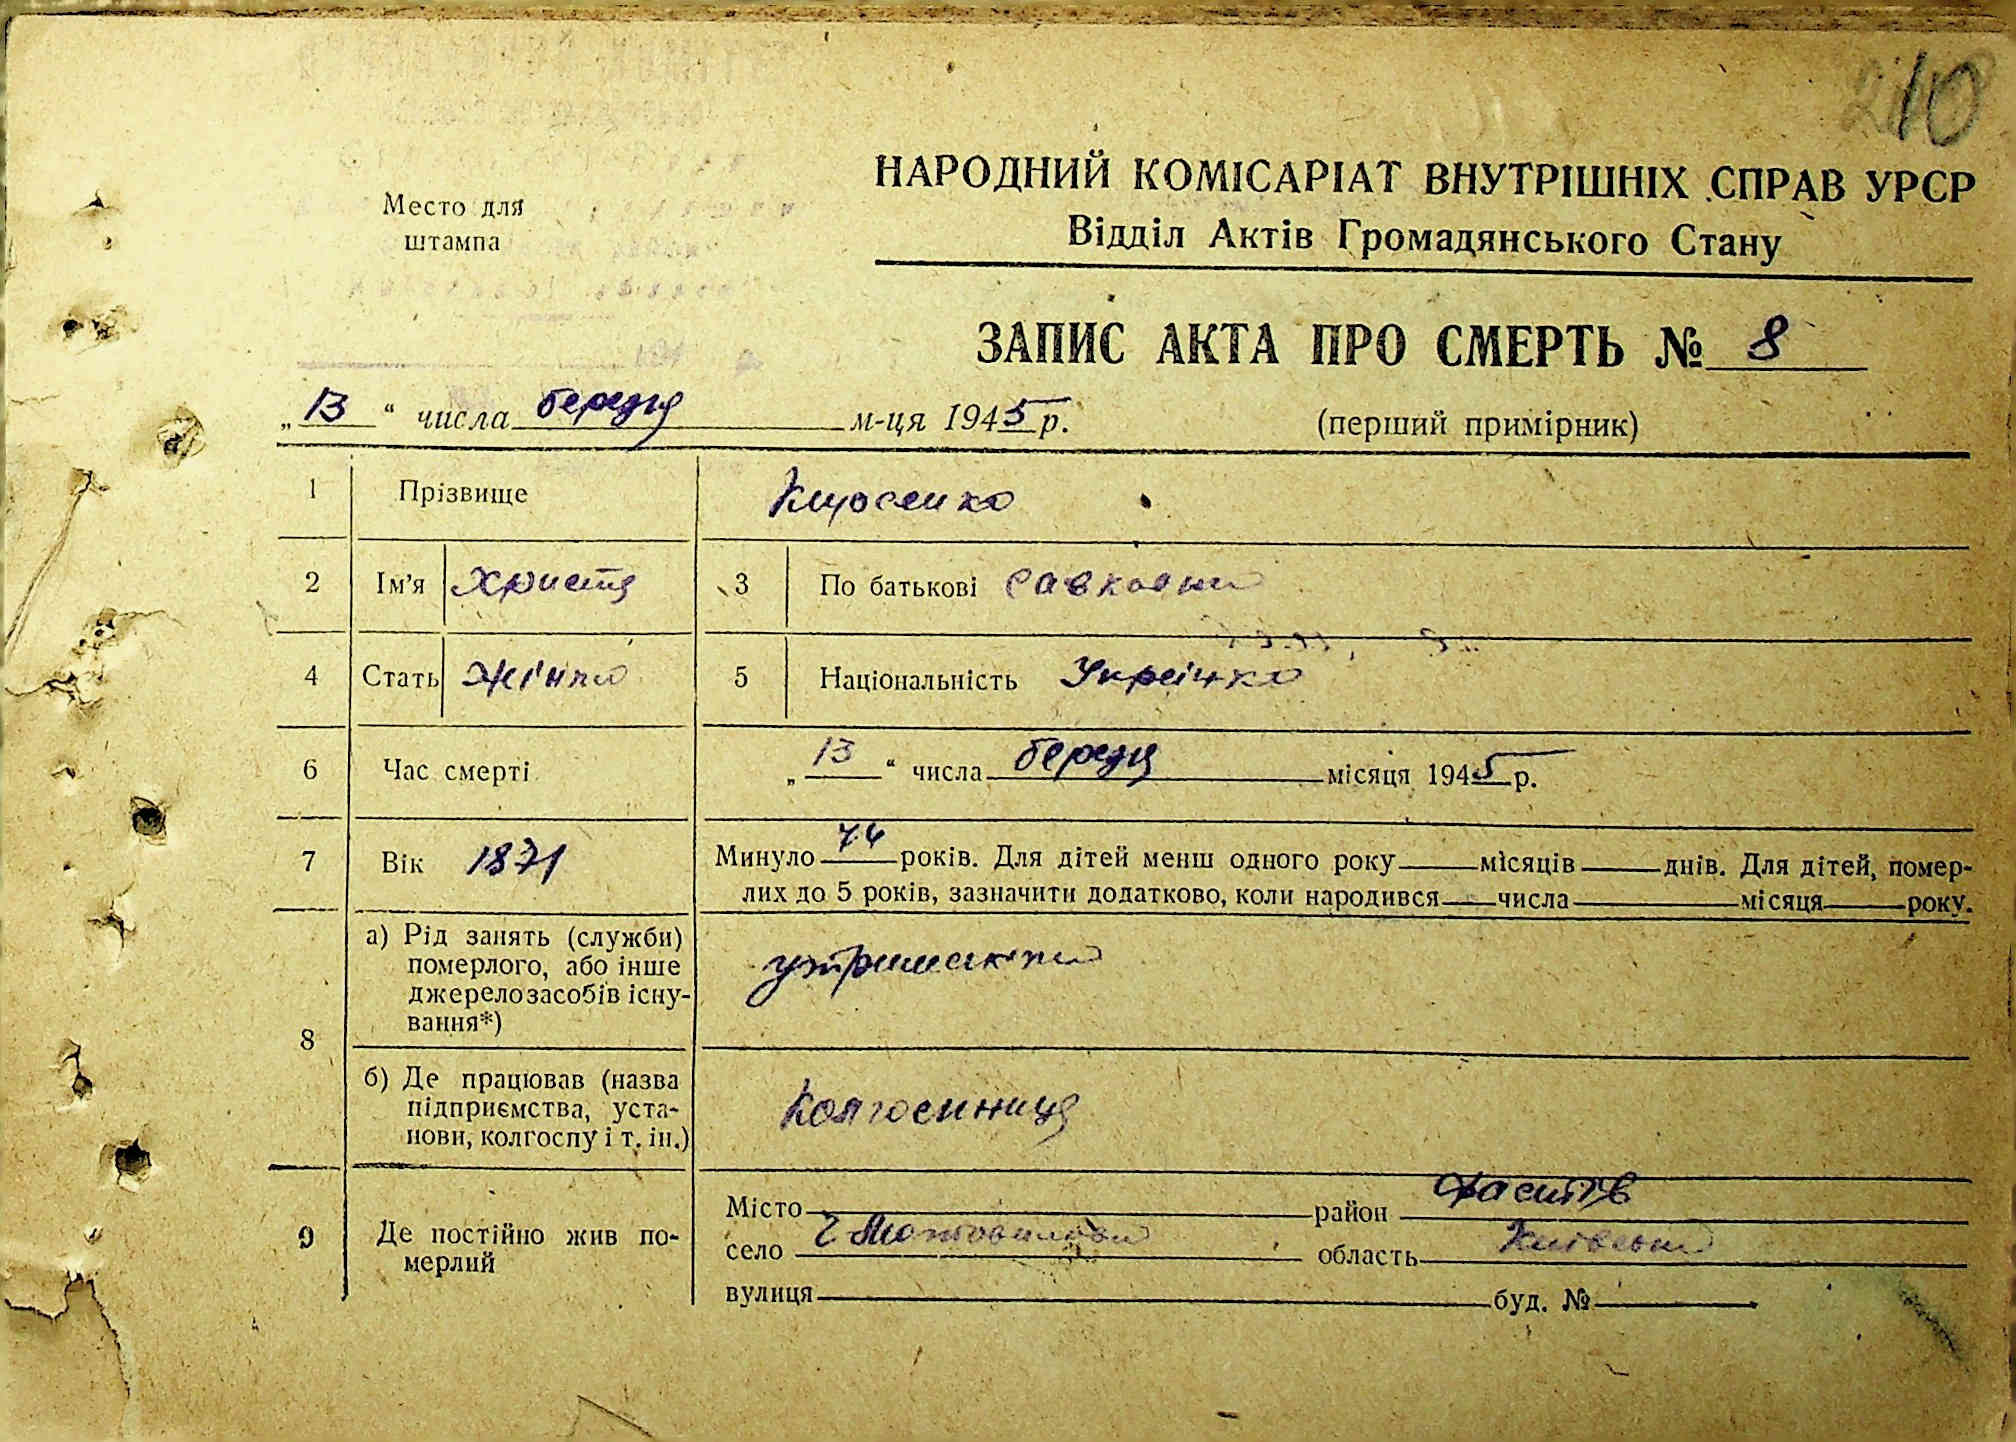 10
НАРОДНИЙ КОМІСАРІАТ ВНУТРІШНІХ СПРАВ УРСР
Відділ Актів Громадянського Стану
Место для
штампа
ЗАПИС АКТА ПРО СМЕРТЬ № 8
„13“ числа березня м-ця 1945 р.
(перший примірник)
1 Прізвище
2 Ім'я Христя 3 По батькові Савковна
4 Стать Жінка 5 Національність Українка
6 Час смерті „13“ числа березня місяця 1945 р.
7 Вік 1871 Минуло 74 років. Для дітей менш одного року місяців днів. Для дітей, помер-
лих до 5 років, зазначити додатково, коли народився числа місяця року.
8 а) Рід занять (служби)
померлого, або інше
джерело засобів існу-
вання*)
утриманка
б) Де працював (назва
підприємства, уста-
нови, колгоспу і т. ін.)
Колгоспниця
9 Де постійно жив по-
мерлий
Місто район Фастів
село Мотовилівка область Київська
вулиця буд. №